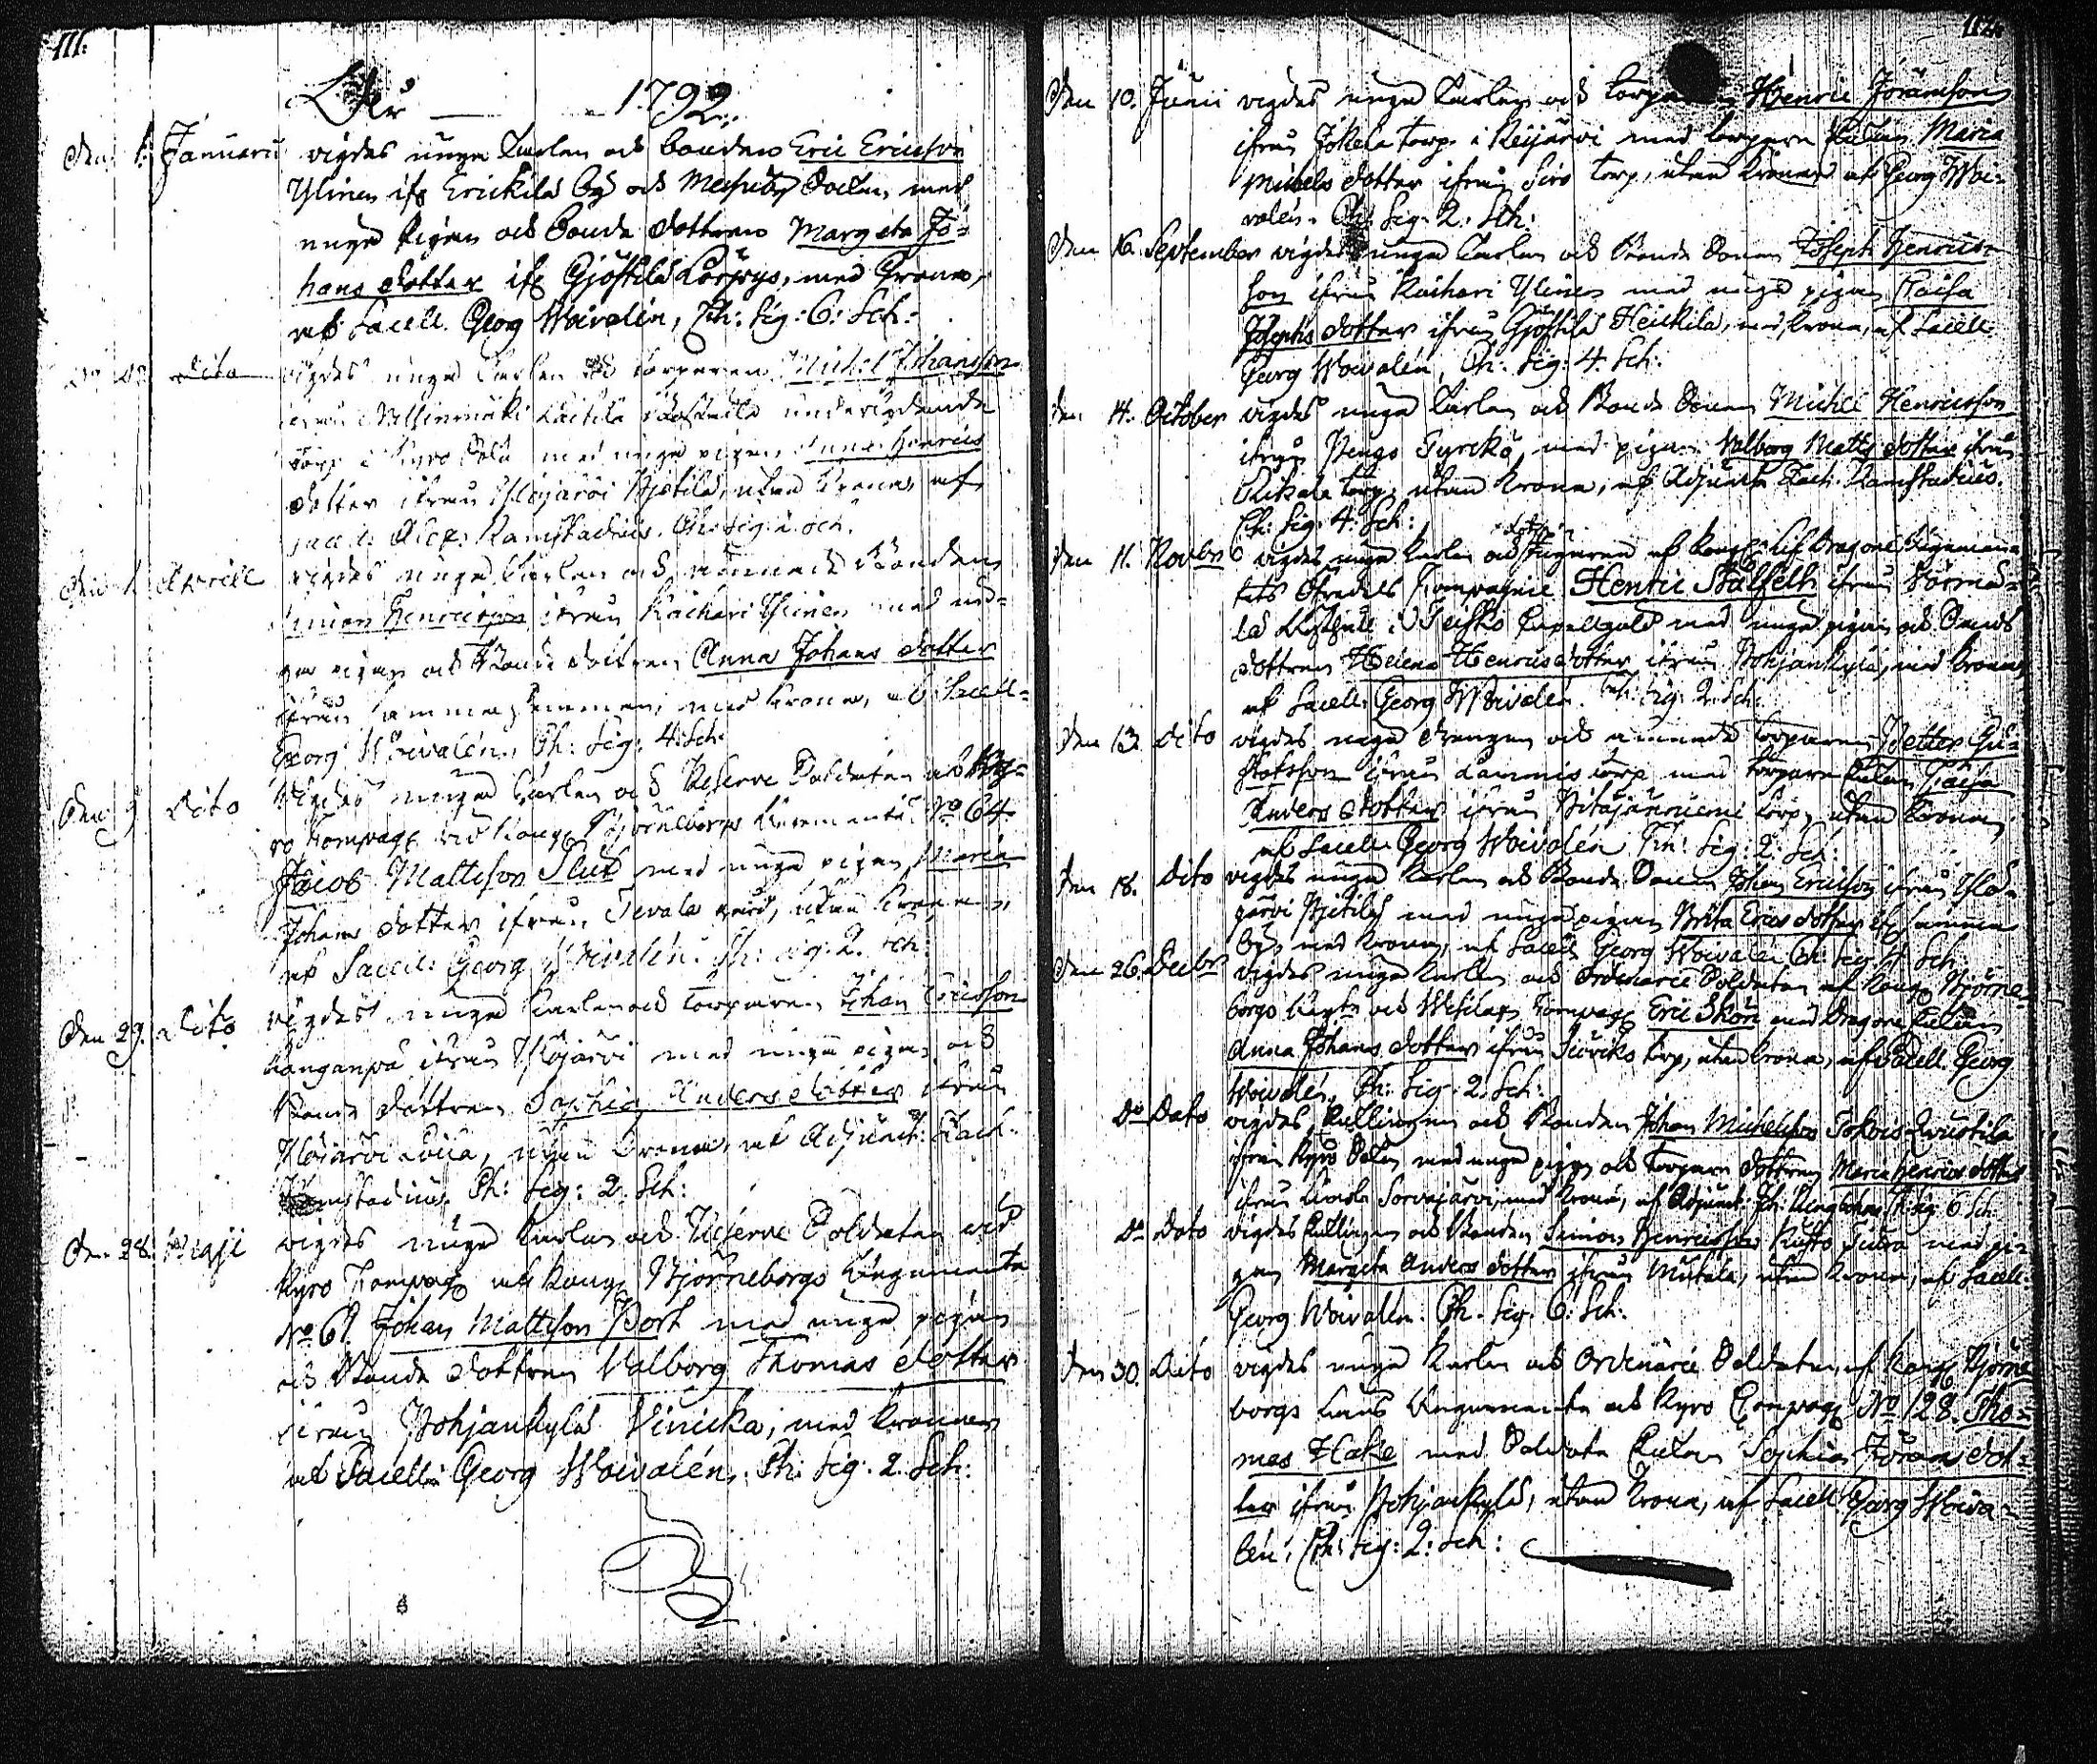 111.
År 1792.
Den 1. Januarii vigdes unga Karlen och bonden Eric Ericsson
Ylinen ifr Erickilä by och Sochn, med
unga Pigan och Bonde dottren Margeta Jo=
hans dotter ifr Gjöstilä Lorpys, med Krona,
af Sacell. Georg Woivalén, Ch: Sig: 6: Sch:
Dito vigdes unga Karlen och torparen Michel Johansson
ifrån underlydande
torp i Kyro med unga pigan Anna Henrics
dotter ifrån Ylöjärvi Pjetilä, utan Krona, af
Ramstadius. Ch: Sig: 2. Sch.
Den 1. Aprill vigdes unga Karlen och Bonden
Simon Henricsson ifrån Räihari Ylinen med un=
ga pigan och Bonde dottren Anna Johans dotter
ifrån samma hemman, med Krona, af Sacell=
Georg Woivalén, Ch: Sig: 4: Sch:
Den 9. Dito Vigdes unga Karlen och Reserve Soldaten af Ky=
ro Compag: vid Kong: Björneborgs Regemente No 64
Jacob Mattsson Slud med unga pigan Maria
Johans dotter ifrån Tevala gård, utan Krona,
af Sacell: Georg Woivalén. Ch: Sig: 2. Sch:
Den 29. Dito vigdes unga Karlen och Torparen Johan Ericsson
Kanganpä ifrån Ylöjärvi med unga pigan och
Bonde dottren Sophia Anders dotter ifrån
Ylöjärvi, utan Krona, af Adjunct: Zach.
Ramstadius. Ch: Sig: 2. Sch:
Den 28. Maji vigdes unga Karlen och Reserve Soldaten vid
Kyro Compag af Kong: Björneborgs Regemente
No 61. Johan Mattsson Bort med unga pigan
och Bonde dottren Valborg Thomas dotter
ifrån Pohjankylä Vinicka, med Kronan
af Sacell: Georg Woivalén. Ch: Sig: 2. Sch:
112.
Den 10. Junii vigdes unga Karlen och Torparen Henric Jöransson
ifrån Jokela torp i Keijärvi med torpare Pigan Maria
Michels dotter ifrån Siro torp, utan Krona af Georg Woi=
valén. Ch: Sig. 2: Sch:
Den 16. September vigdes unga Karlen och Bonde Sonen Joseph Henrics=
son ifrån Räihari Ylinen med unga pigan Caisa
Josephs dotter ifrån Gjöstilä Heickilä, med Krona, af Sacell:
Georg Woivalén, Ch: Sig: 4. Sch:
Den 14. October vigdes unga Karlen och Bonde Sonen Michel Henricsson
ifrån Pengo Tyrckö, med pigan Valborg Matts dotter ifrån
torp, utan Krona, af Adjuncten Zach. Ramstadius.
Ch: Sig: 4: Sch:
Den 11. Novbr vigdes unga Karlen och af Kongl: Lif Dragone Regemen=
tets Öfredels Compagnie Henric Stålfelt ifrån
i Teisko Capellgäld med unga pigan och Bonde
dottren Helena Henrics dotter ifrån Pohjankylä, med Krona,
af Sacell: Georg Woivalén. Ch: Sig: 2. Sch:
Den 13. Dito vigdes unga drengen och Torparen Petter Gu=
stafsson ifrån Lammis torp med torpare Pigan Caisa
Anders dotter ifrån torp, utan Krona,
af Sacell: Georg Woivalén Ch: Sig: 2. Sch:
Den 18. Dito vigdes unga Karlen och Bonde Sonen Johan Ericsson ifrån Ylö=
järvi Pjetilä med unga pigan Brita Erics dotter ifr samma
by, med Krona, af Sacell Georg Woivalén Ch: Sig 4 Sch:
Den 26. Decbr vigdes unga Karlen och Ordinarie Soldaten af Kong: Björne=
borgs Regte och Compag Eric Skön med Dragone Enkan
Anna Johans dotter ifrån torp, utan Krona, af Sacell. Georg
Woivalén, Ch: Sig: 2: Sch:
Do Dato vigdes Enklingen och Bonden Johan Michelsson
ifrån Kyro Sokn, med unga pigan och Torpare dottren Maria Henrics dotter
ifrån Sorvajärvi, med Krona, af Adjunct Sig: 6 Sch.
Do Dato vigdes Enklingen och Bonden Simon Henricsson med pi=
gan Margeta Anders dotter ifrån Mickala, utan Krona, af Sacell:
Georg Woivalén. Ch. Sig. 6: Sch:
Den 30. Dito vigdes unga Karlen och Ordinarie Soldaten af Kong: Björne
borgs Läns Regemente och Kyro Compag No 128. Tho=
mas Hake med Soldate Enkan Sophia Jörans dot=
ter ifrån Pohjankylä, utan Krona, af Sacell: Georg Woiva=
lén, Ch: Sig: 2: Sch: